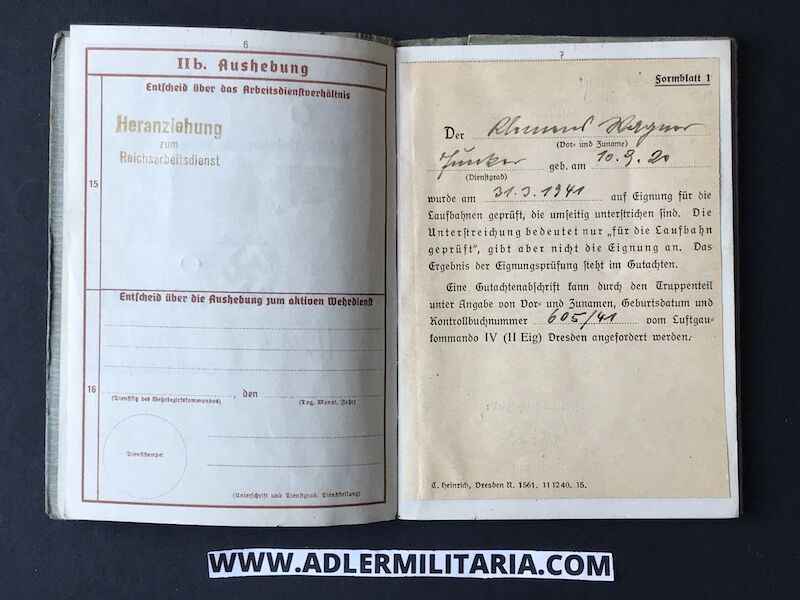 6
II b. Aushebung
Entscheid über das Arbeitsdienstverhältnis
Heranziehung
zum
Reichsarbeitsdienst
15
Entscheid über die Aushebung zum aktiven Wehrdienst
16
, den
(Dienstsitz des Wehrbezirkskommandos)
(Tag, Monat, Jahr)
Dienststempel
(Unterschrift und Dienstgrad, Dienststellung)
7
Formblatt 1
Der Klemens Wagner
(Vor- und Zuname)
Junker geb. am 10.9.20
(Dienstgrad)
wurde am 31.3.1941 auf Eignung für die
Laufbahnen geprüft, die umseitig unterstrichen sind. Die
Unterstreichung bedeutet nur „für die Laufbahn
geprüft“, gibt aber nicht die Eignung an. Das
Ergebnis der Eignungsprüfung steht im Gutachten.
Eine Gutachtenabschrift kann durch den Truppenteil
unter Angabe von Vor- und Zunamen, Geburtsdatum und
Kontrollbuchnummer 605/41 vom Luftgau-
kommando IV (II Eig) Dresden angefordert werden.
C. Heinrich, Dresden N. 1561. 11 12 40. 15.
WWW.ADLERMILITARIA.COM